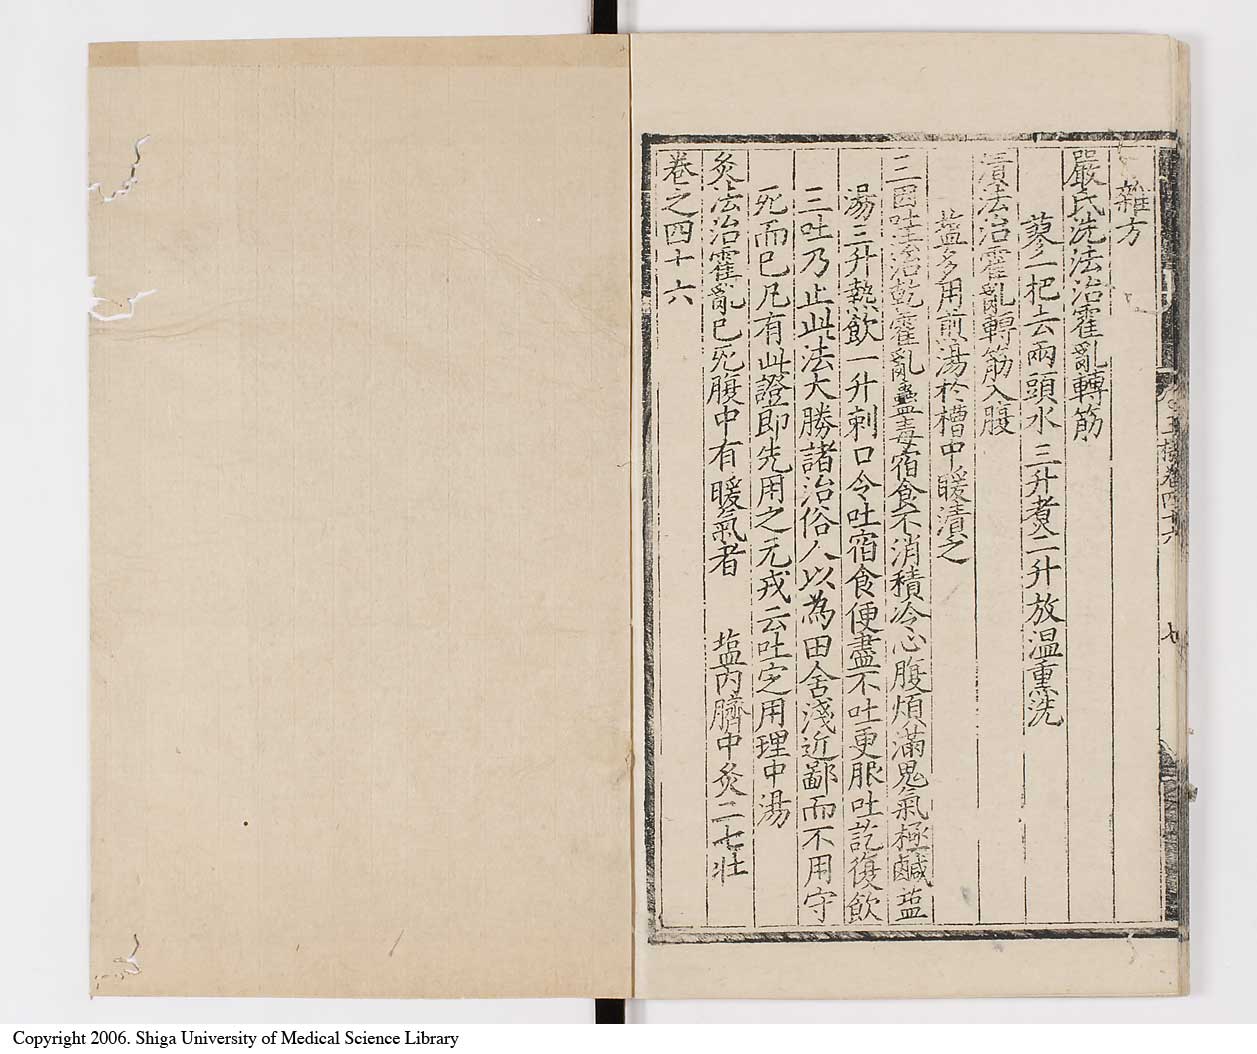 雜方
嚴氏洗法治霍亂轉筋
蓼一把去兩頭水三升煮二升放温熏洗
漬法治霍亂轉筋入腹
塩多用煎湯於槽中暖漬之
三因吐法治乾霍亂蠱毒宿食不消積冷心腹煩滿鬼氣極鹹塩
湯三升熱飲一升刺口令吐宿食便盡不吐更服吐訖復飲
三吐乃止此法大勝諸治俗人以為田舍淺近鄙而不用守
死而已凡有此證即先用之元戎云吐定用理中湯
灸法治霍亂已死腹中有暖氣者 塩内臍中灸二七壯
卷之四十六
Copyright 2006. Shiga University of Medical Science Library